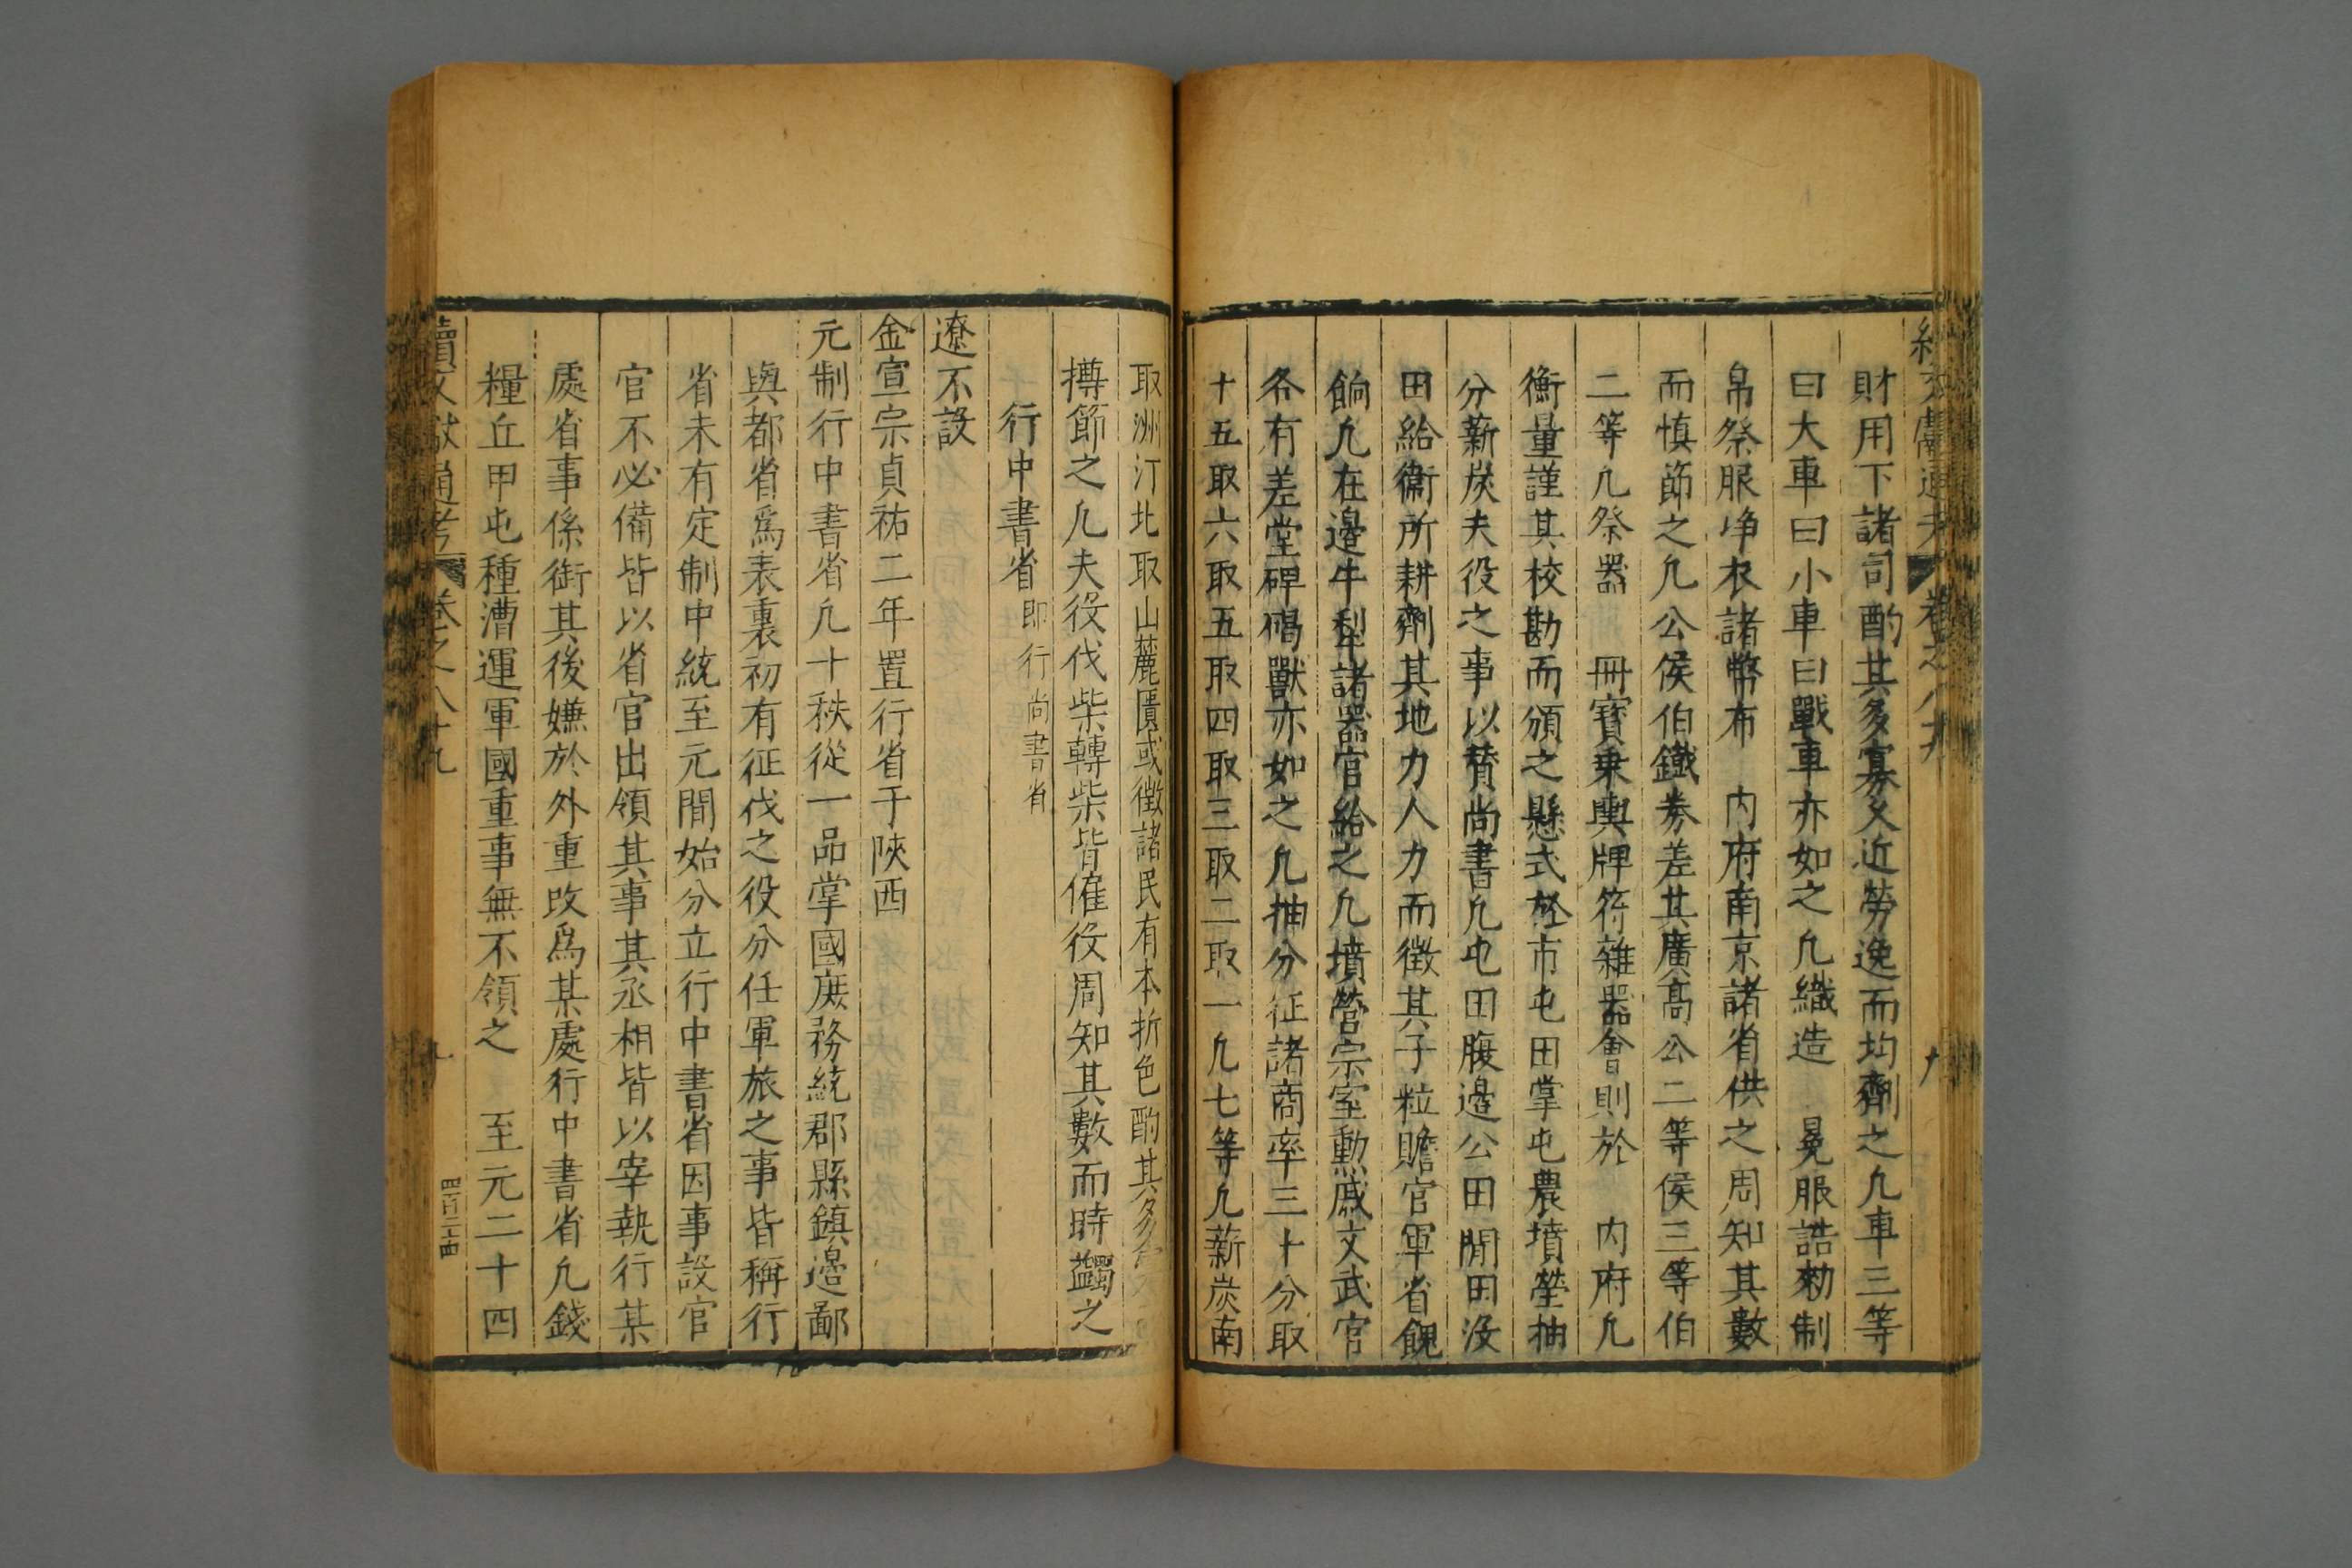 財用下諸司酌其多寡久近勞逸而均劑之凡車三等
曰大車曰小車曰戰車亦如之凡織造　冕服誥勑制
帛祭服淨衣諸幣布　內府南京諸省供之周知其數
而慎節之凡公侯伯鐵券差其廣高公二等侯三等伯
二等凡祭器　冊寶乗輿牌符雜器會則於　內府凡
衡量謹其校勘而頒之懸式於市屯田掌屯農墳塋抽
分薪炭夫役之事以賛尚書凡屯田腹邊公田閒田沒
田給衛所耕劑其地力人力而徵其子粒贍官軍省餽
餉凡在邊牛犁諸器官給之凡墳營宗室勲戚文武官
各有差堂碑碣獸亦如之凡抽分征諸商率三十分取
十五取六取五取四取三取二取一凡七等凡薪炭南
取洲汀北取山麓匱或徵諸民有本折色酌其多
撙節之凡夫役伐柴轉柴皆僱役周知其數而時蠲之
行中書省 即行尚書省
遼不設
金宣宗貞祐二年置行省于陜西
元制行中書省凡十秩從一品掌國庶務統郡縣鎮邉鄙
與都省爲表裏初有征伐之役分任軍旅之事皆稱行
省未有定制中統至元間始分立行中書省因事設官
官不必備皆以省官出領其事其丞相皆以宰執行某
處省事係銜其後嫌於外重改爲某處行中書省凡錢
糧丘甲屯種漕運軍國重事無不領之　至元二十四
續文獻通考 卷之八十九
四百二十四